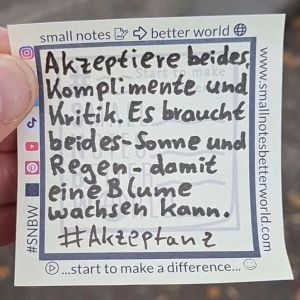 small notes better world
Akzeptiere beides,
Komplimente und
Kritik. Es braucht
beides-Sonne und
Regen-damit
eine Blume
wachsen kann.
#Akzeptanz
...start to make a difference...
#SNBW
www.smallnotesbetterworld.com